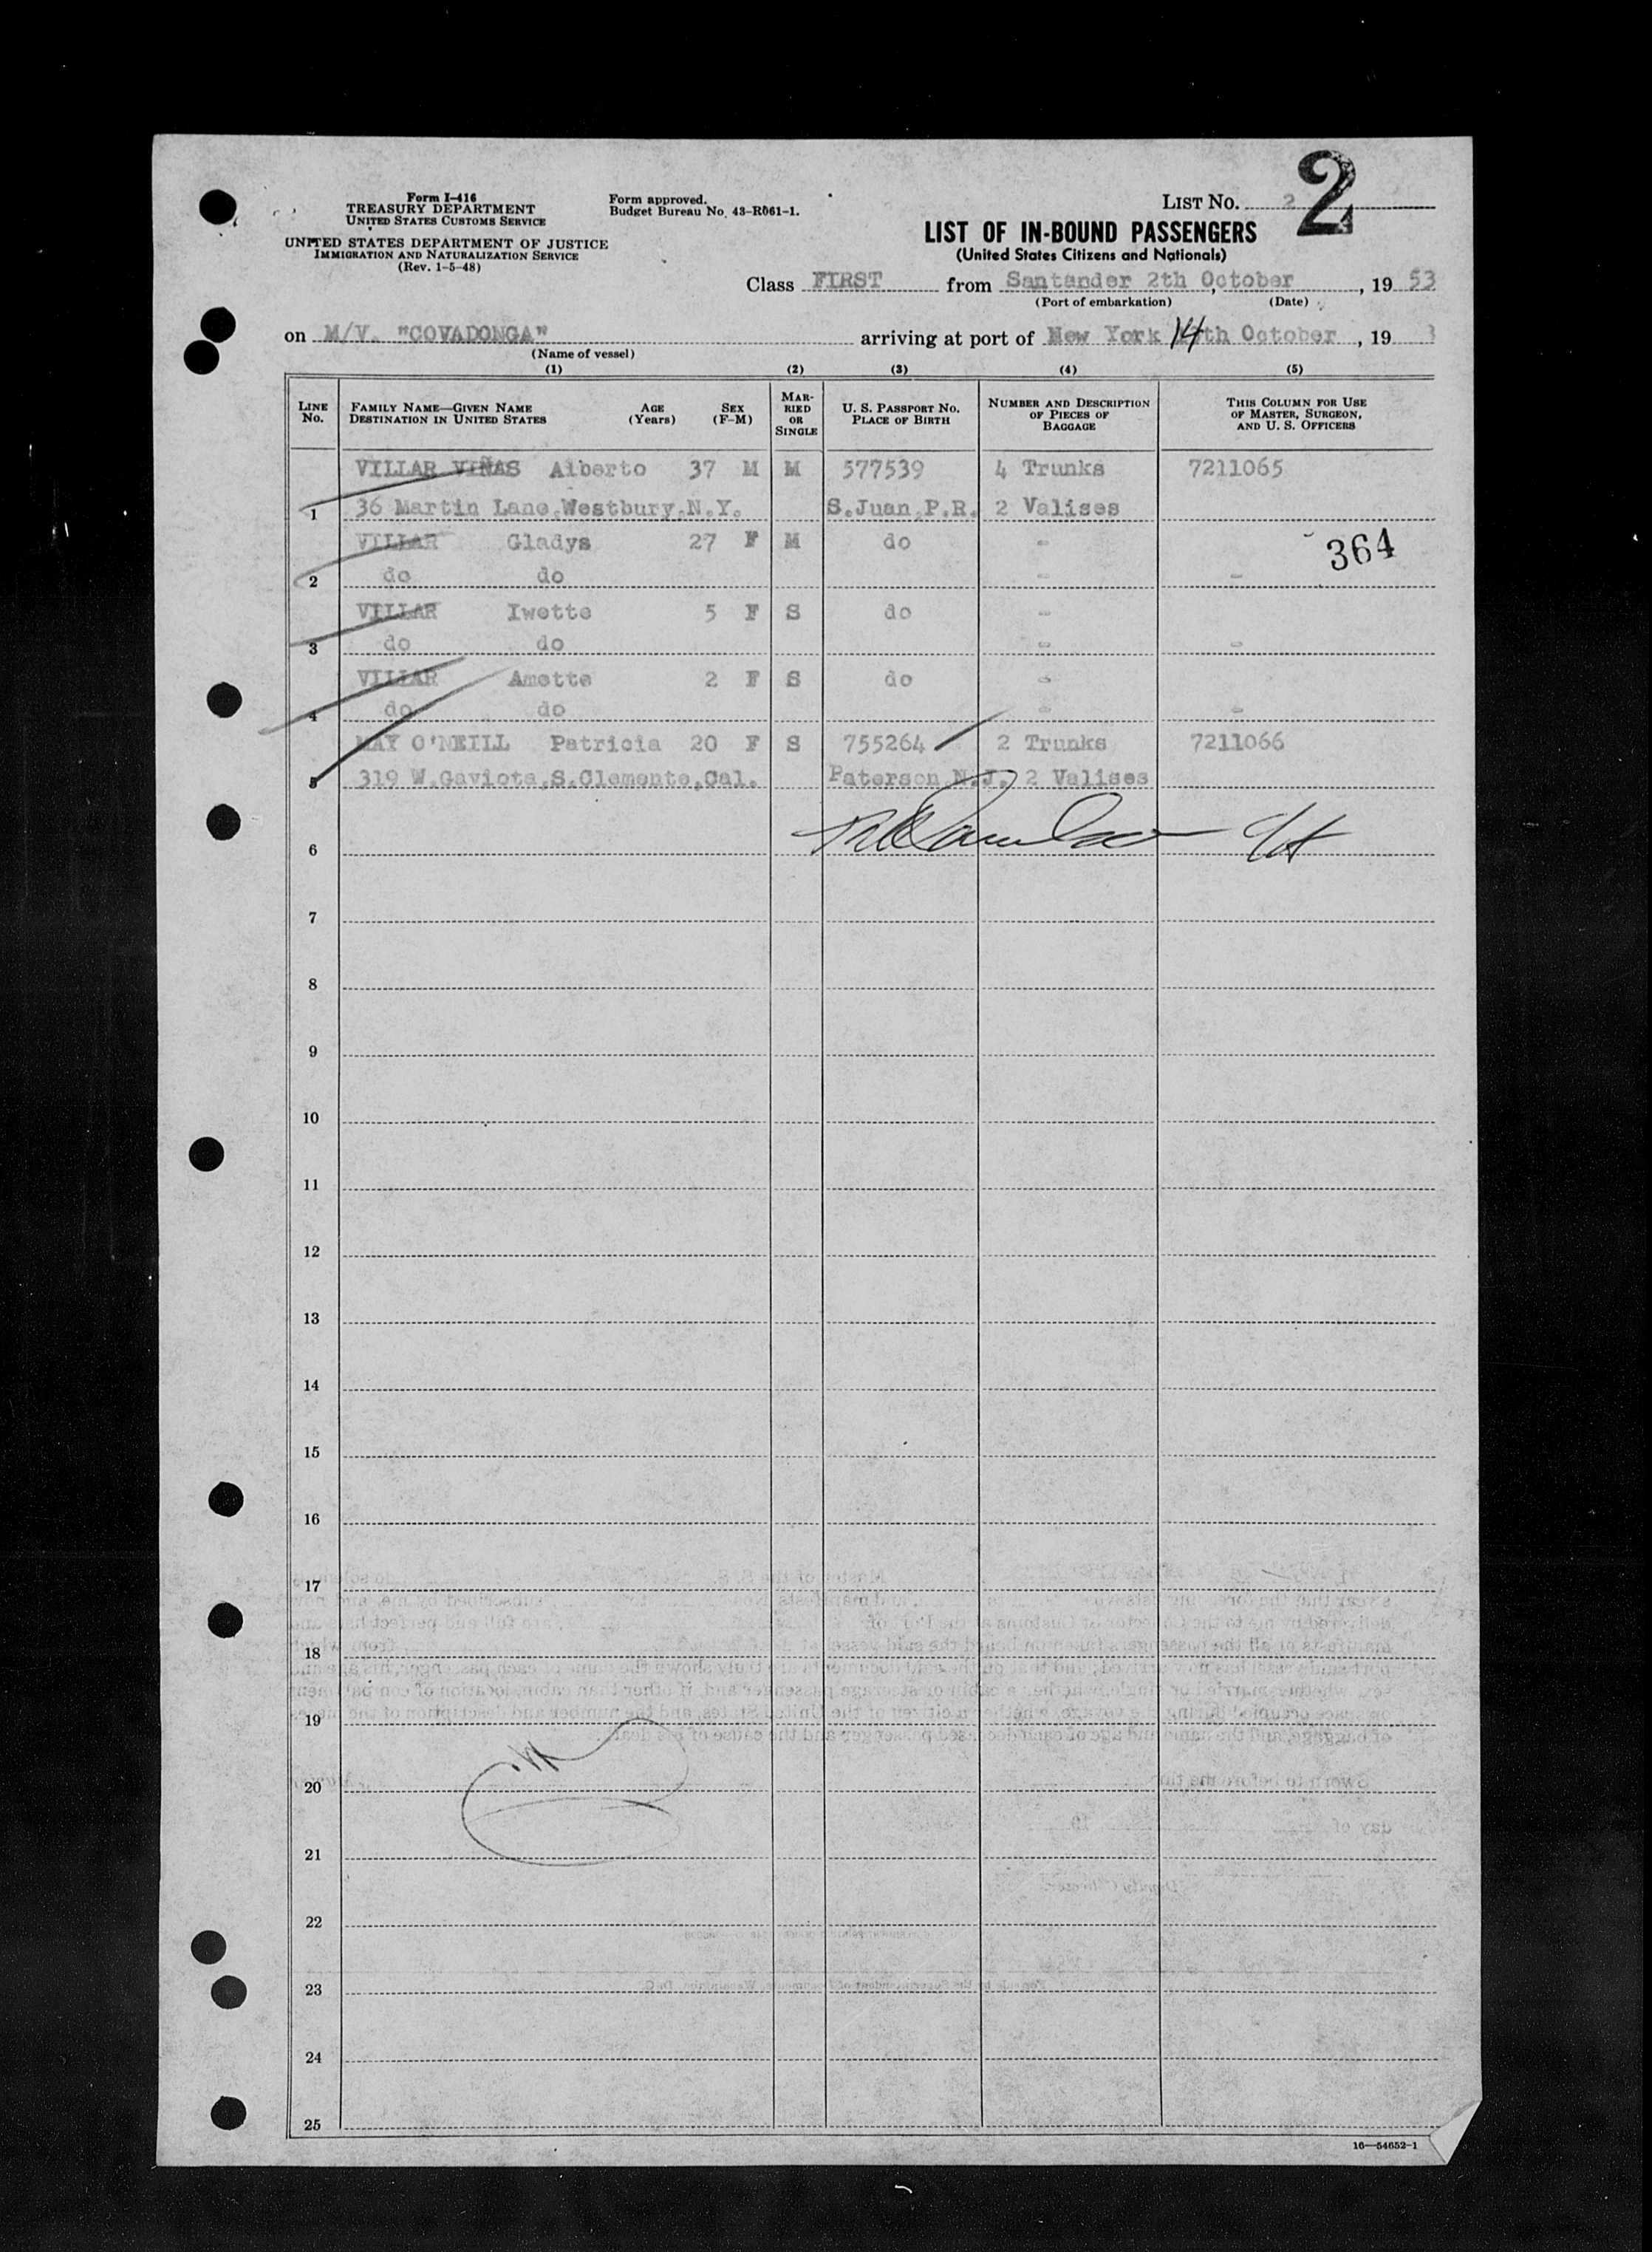 Form I-416
TREASURY DEPARTMENT
UNITED STATES CUSTOMS SERVICE
UNITED STATES DEPARTMENT OF JUSTICE
IMMIGRATION AND NATURALIZATION SERVICE
(Rev. 1-5-48)
Form approved.
Budget Bureau No. 43-R061-1.
LIST No. 2
2
LIST OF IN-BOUND PASSENGERS
(United States Citizens and Nationals)
Class FIRST from Santander 2th October, 1953
(Port of embarkation) (Date)
on M/V. "COVADONGA" arriving at port of New York 14th October, 19 3
(Name of vessel)
(1) (2) (3) (4) (5)
LINE No. FAMILY NAME—GIVEN NAME DESTINATION IN UNITED STATES AGE (Years) SEX (F-M) MARRIED OR SINGLE U. S. PASSPORT NO. PLACE OF BIRTH NUMBER AND DESCRIPTION OF PIECES OF BAGGAGE THIS COLUMN FOR USE OF MASTER, SURGEON, AND U. S. OFFICERS
VILLAR VIÑAS Alberto 37 M M 577539 4 Trunks 7211065
1 36 Martin Lane,Westbury,N.Y. S.Juan,P.R. 2 Valises
VILLAR Gladys 27 F M do - 364
2 do do - -
VILLAR Iwette 5 F S do -
3 do do - -
VILLAR Anette 2 F S do -
4 do do - -
MAY O'NEILL Patricia 20 F S 755264 2 Trunks 7211066
5 319 W.Gaviota,S.Clemente,Cal. Paterson N.J. 2 Valises
6
7
8
9
10
11
12
13
14
15
16
17
18
19
20
21
22
23
24
25
16—54652-1